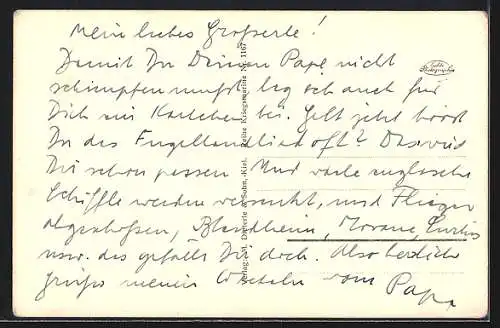 Mein liebes Großerle!
Damit Du Deinen Papi nicht
schimpfen mußt leg ich auch für
Dich ein Kärtchen bei. Gelt jetzt hörst
Du das Engellandlied oft? Das wird
Dir schon passen Und viele englische
Schiffle werden versenkt, und Flieger
abgeschossen, Blendheim, Morane, Curtis
usw. das gefällt Dir doch. Also herzliche
Grüße meinem vom Papi
Verlag M. Dieterle & Sohn, Kiel. Reihe Kriegsmarine Nr. 1167
Echte
Photographie